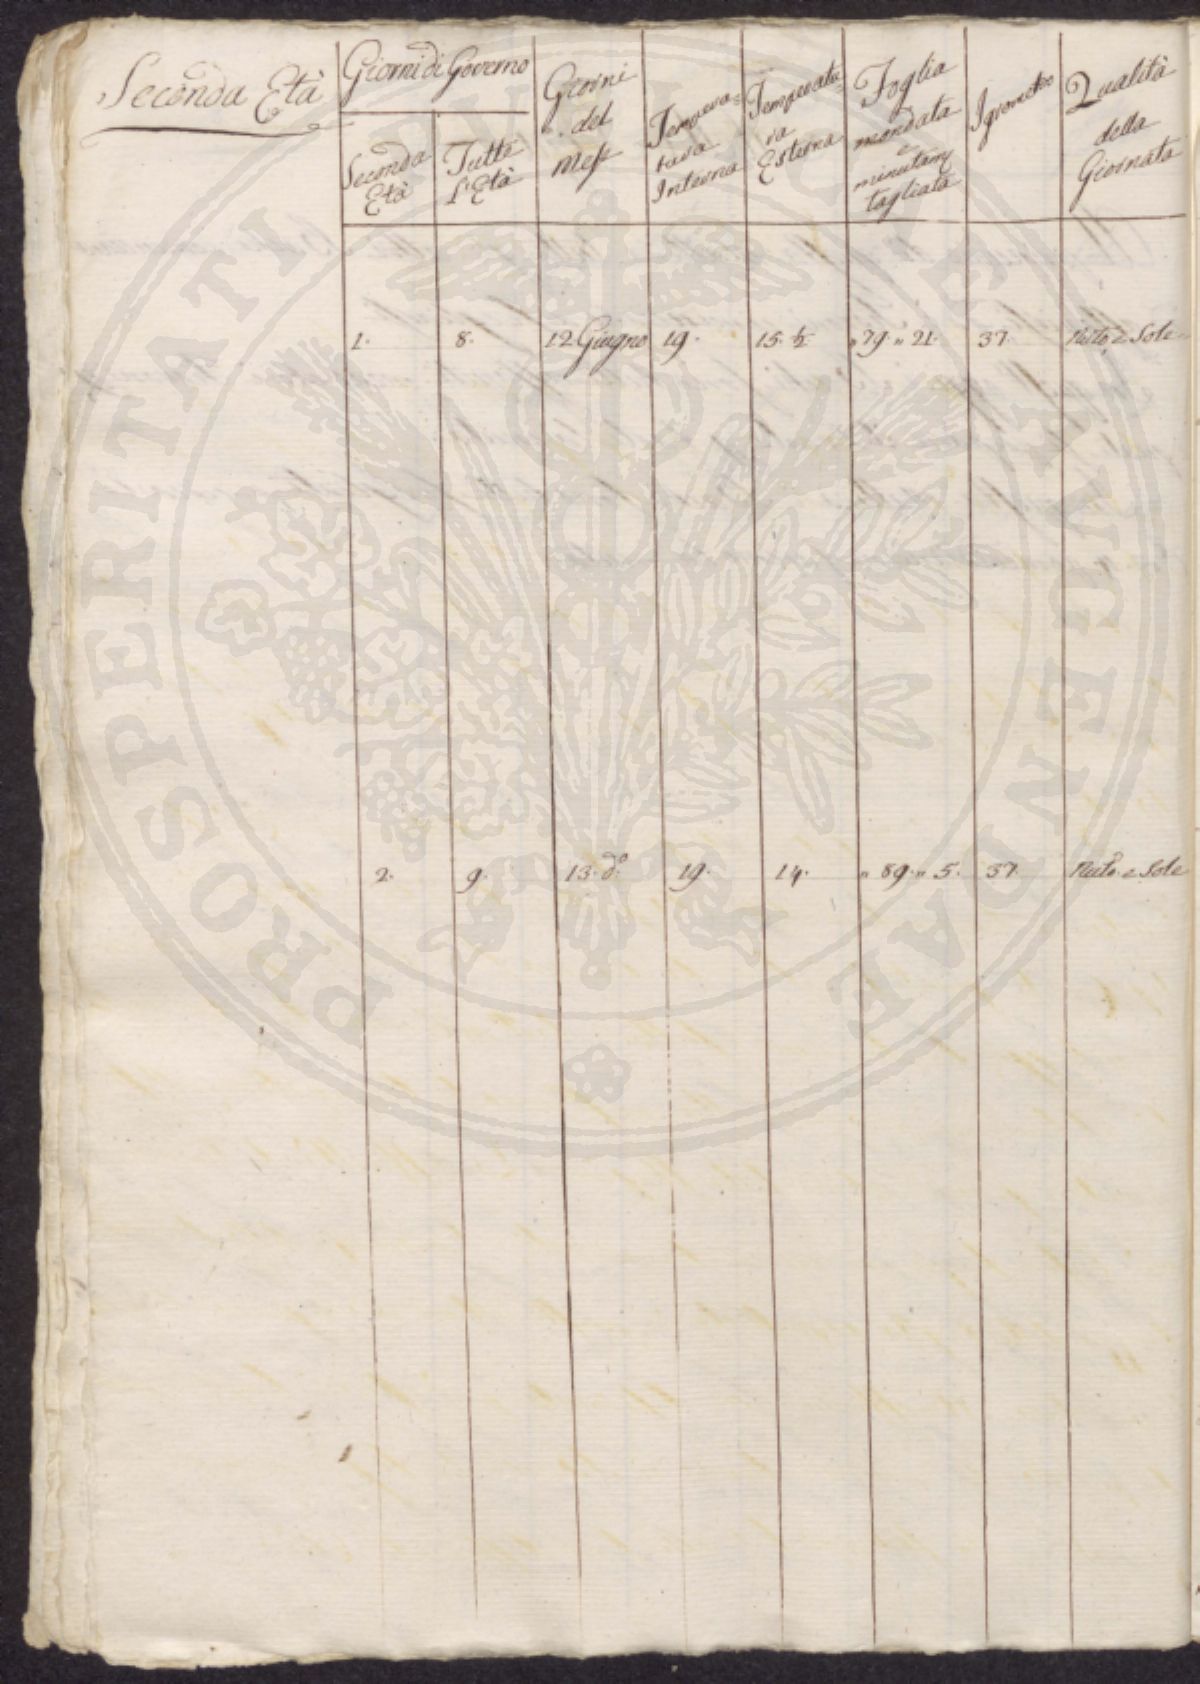 Seconda Età
Giorni di Governo
Seconda
Età
Tutte
L'Età
Giorni
del
Mese
Tempera=
tura
Interna
Temperatu
ra
Esterna
Foglia
mondata
e
minutamte
tagliata
Igrometro
Qualità
della
Giornata
1. 8. 12 Giugno 19. 15. ½ " 79. " 21. 37. e Sole
2. 9. 13. do. 19. 14. " 89. " 5. 37. e Sole
PROSPERITATI AUGENDAE